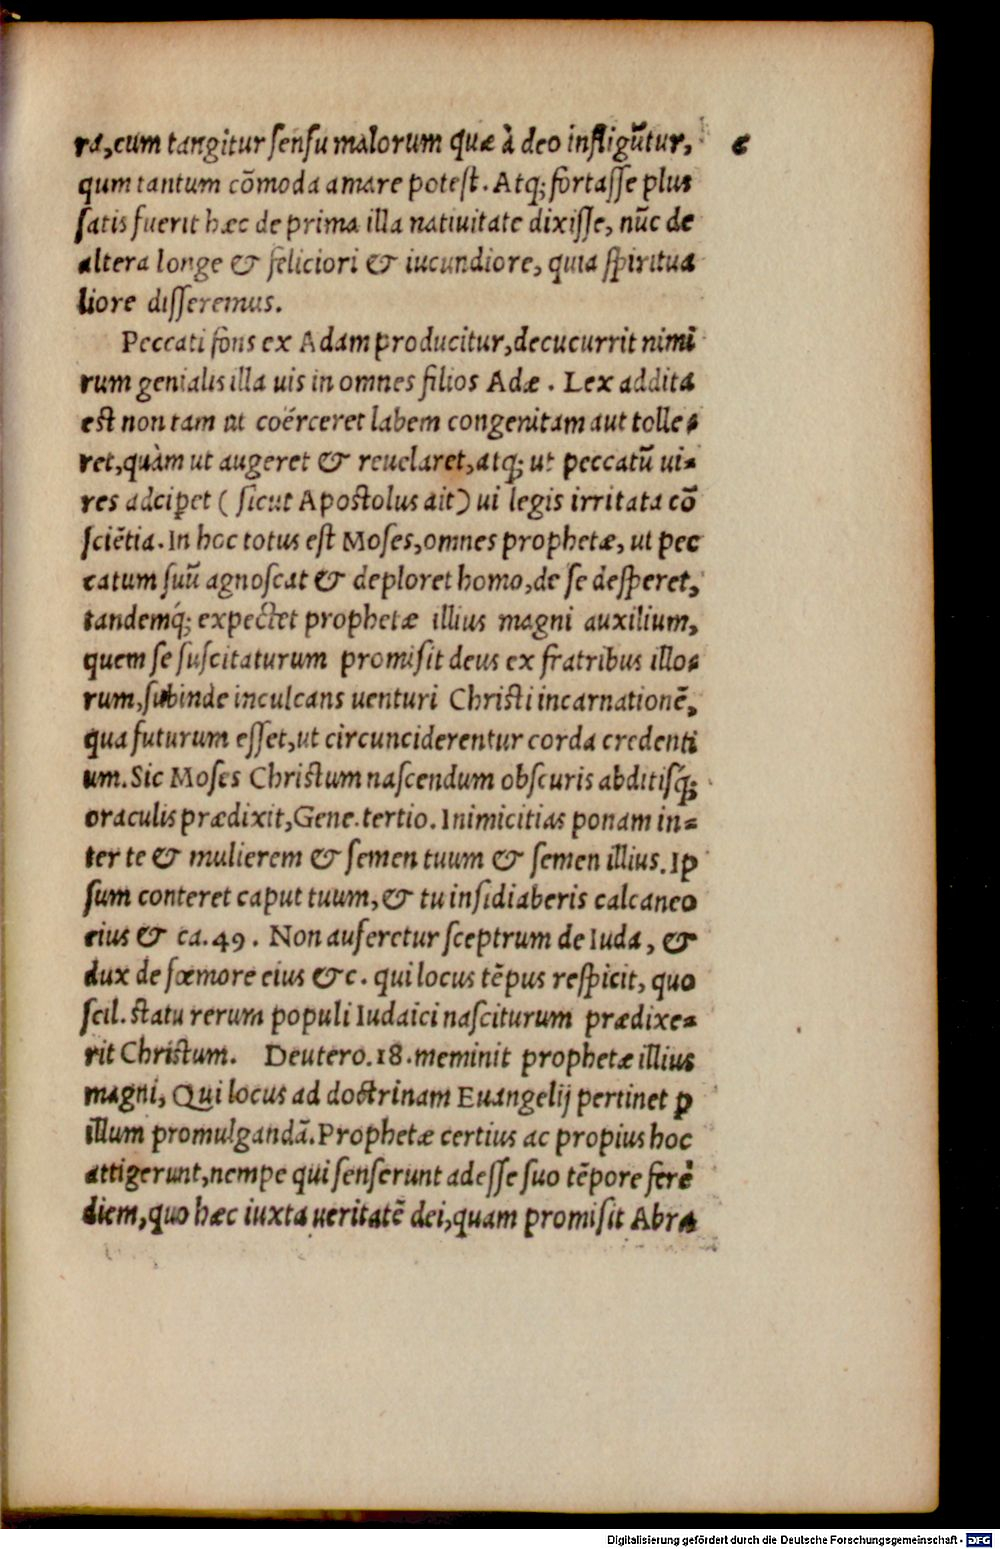 ra,cum tangitur sensu malorum quæ à deo infligũtur,
qum tantum cōmoda amare potest. Atq; fortasse plus
satis fuerit hæc de prima illa natiuitate dixisse, nũc de
altera longe & feliciori & iucundiore, quia spiritua
liore disseremus.
Peccati fons ex Adam producitur,decucurrit nimi
rum genialis illa uis in omnes filios Adæ. Lex addita
est non tam ut coërceret labem congenitam aut tolle-
ret,quàm ut augeret & reuelaret,atq; ut peccatũ ui-
res adciꝑet ( sicut Apostolus ait) ui legis irritata cō
sciẽtia. In hoc totus est Moses,omnes prophetæ, ut pec
catum suũ agnoscat & deploret homo,de se desperet,
tandemq́; expectet prophetæ illius magni auxilium,
quem se suscitaturum promisit deus ex fratribus illo-
rum,subinde inculcans uenturi Christi incarnationẽ,
qua futurum esset,ut circunciderentur corda credenti
um. Sic Moses Christum nascendum obscuris abditisq́;
oraculis prædixit,Gene. tertio. Inimicitias ponam in-
ter te & mulierem & semen tuum & semen illius. Ip
sum conteret caput tuum,& tu insidiaberis calcaneo
eius & ca. 49. Non auferetur sceptrum de Iuda, &
dux de fœmore eius &c. qui locus tẽpus respicit, quo
scil. statu rerum populi Iudaici nasciturum prædixe-
rit Christum. Deutero. 18. meminit prophetæ illius
magni, Qui locus ad doctrinam Euangelij pertinet ꝑ
illum promulgandā. Prophetæ certius ac propius hoc
attigerunt,nempe qui senserunt adesse suo tẽpore ferè
diem,quo hæc iuxta ueritatẽ dei,quam promisit Abra
Digitalisierung gefördert durch die Deutsche Forschungsgemeinschaft - DFG